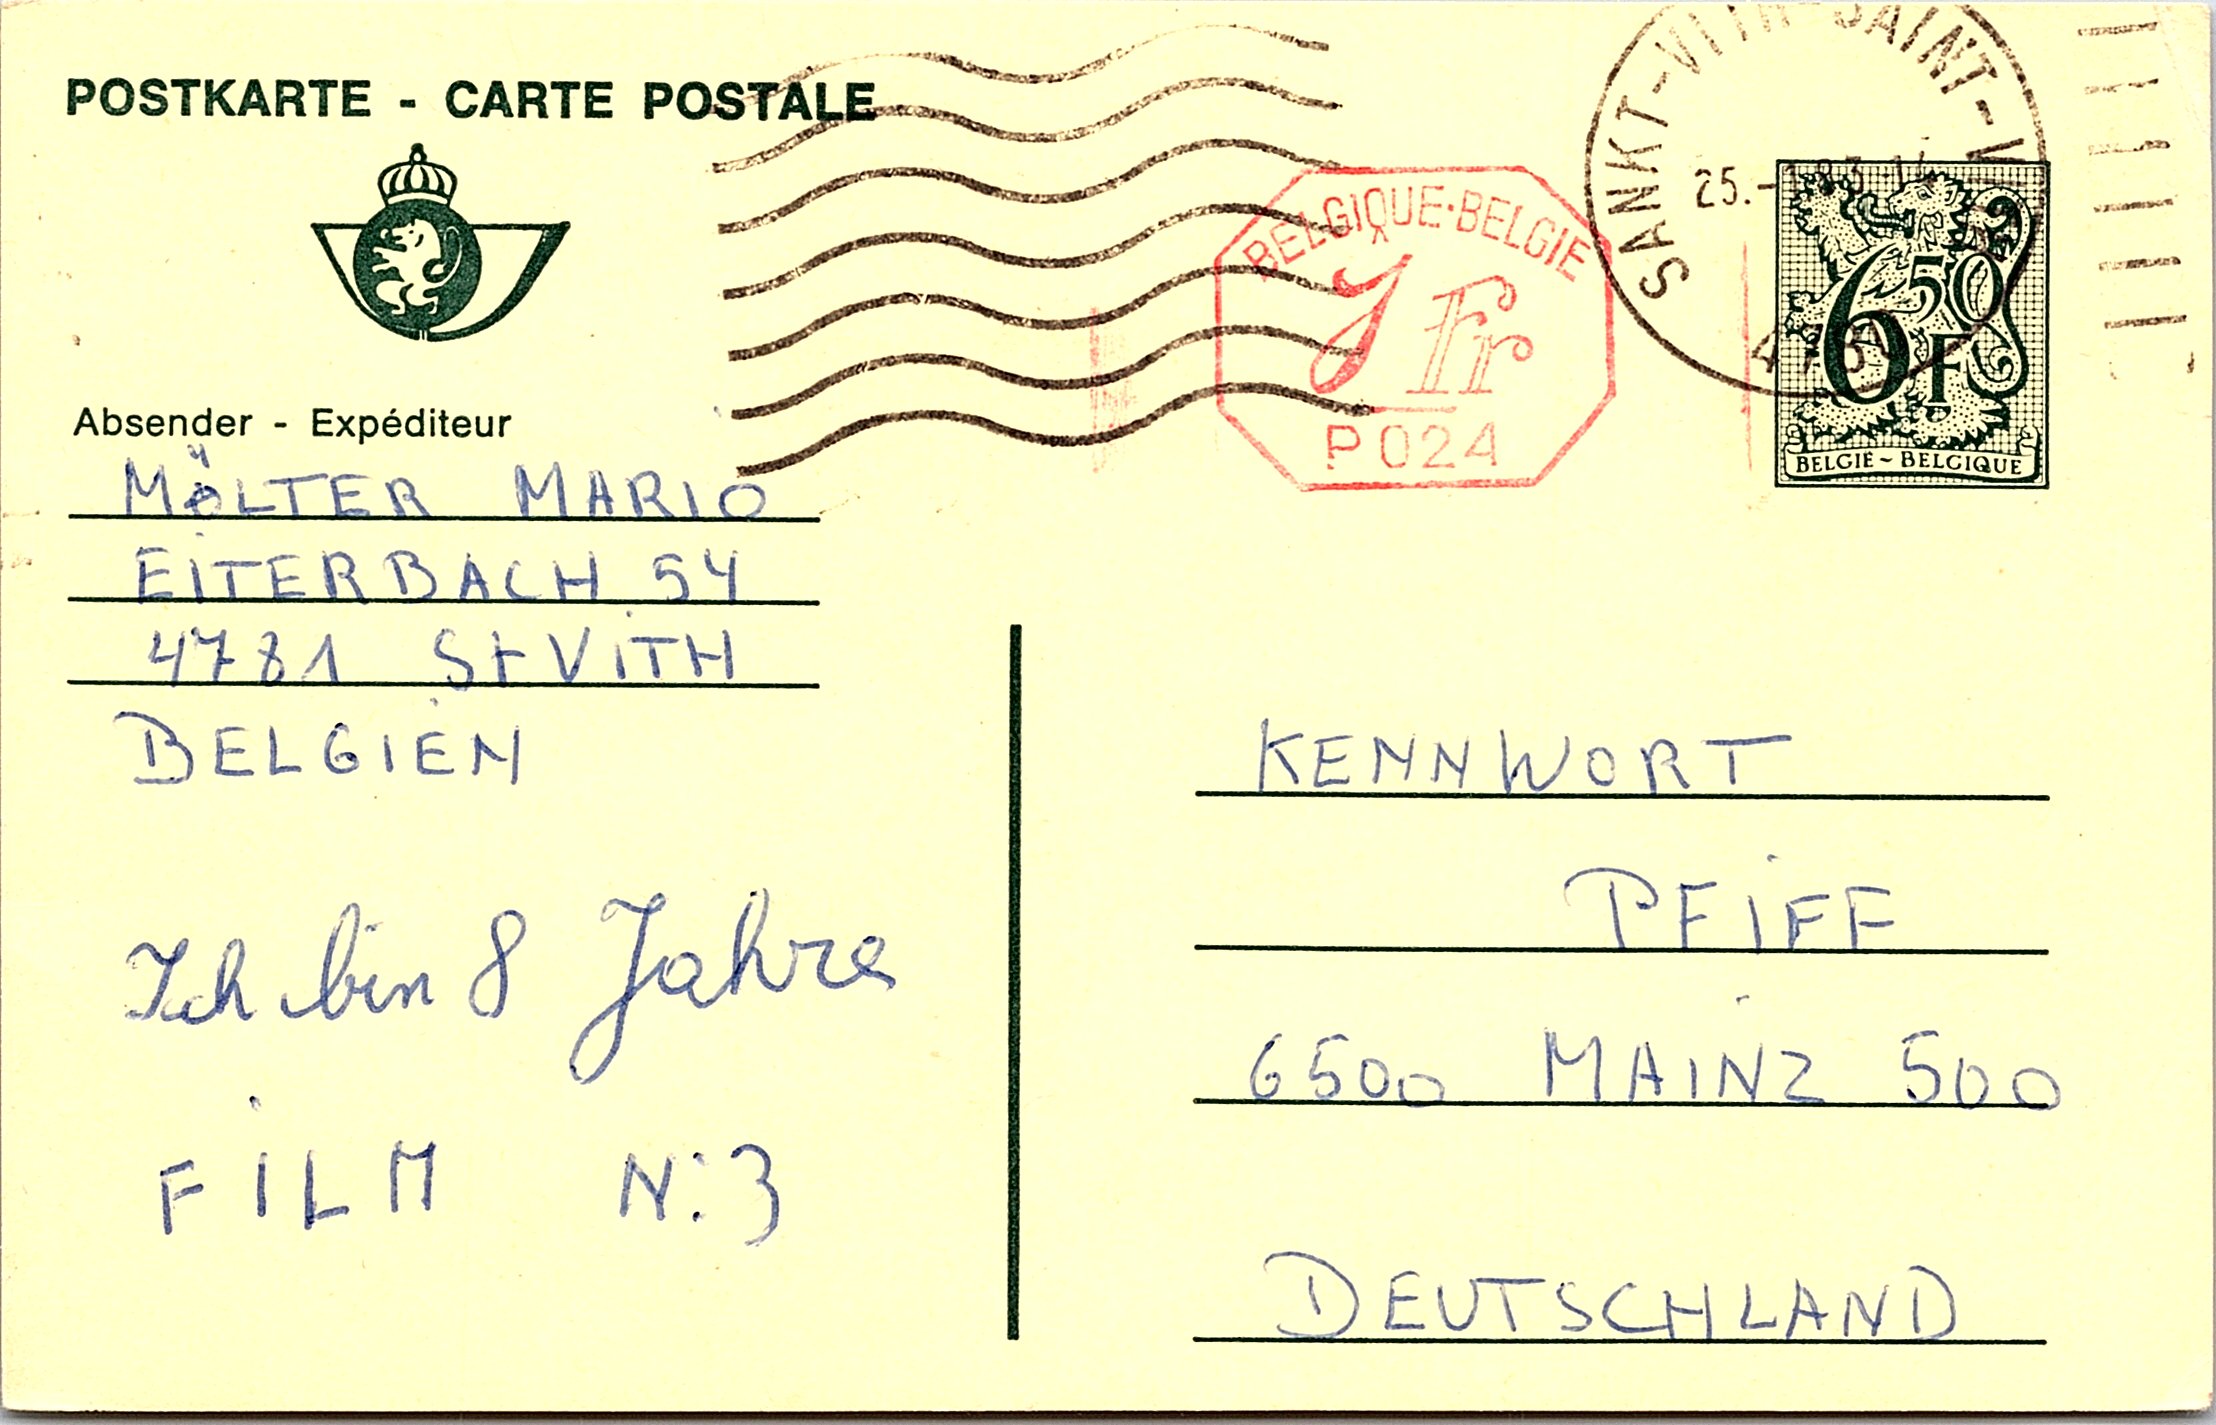 POSTKARTE - CARTE POSTALE
Absender - Expéditeur
MÖLTER MARIO
EITERBACH 54
4781 St VITH
BELGIEN
Ich bin 8 Jahre
FILM N:3
BELGIQUE·BELGIE
1 Fr
P024
SANKT-VITH SAINT-
25.
6 50 F
BELGIË - BELGIQUE
KENNWORT
PFIFF
6500 MAINZ 500
DEUTSCHLAND